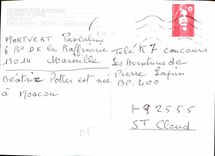 MONTVERT Pascaline
6 Bd DE la Raffinerie
13014 Marseille
Béatrix Potter est née
à Moscou
Télé K7 concours
Les Aventures de
Pierre Lapin
BP. 400
H92555
ST Cloud
05